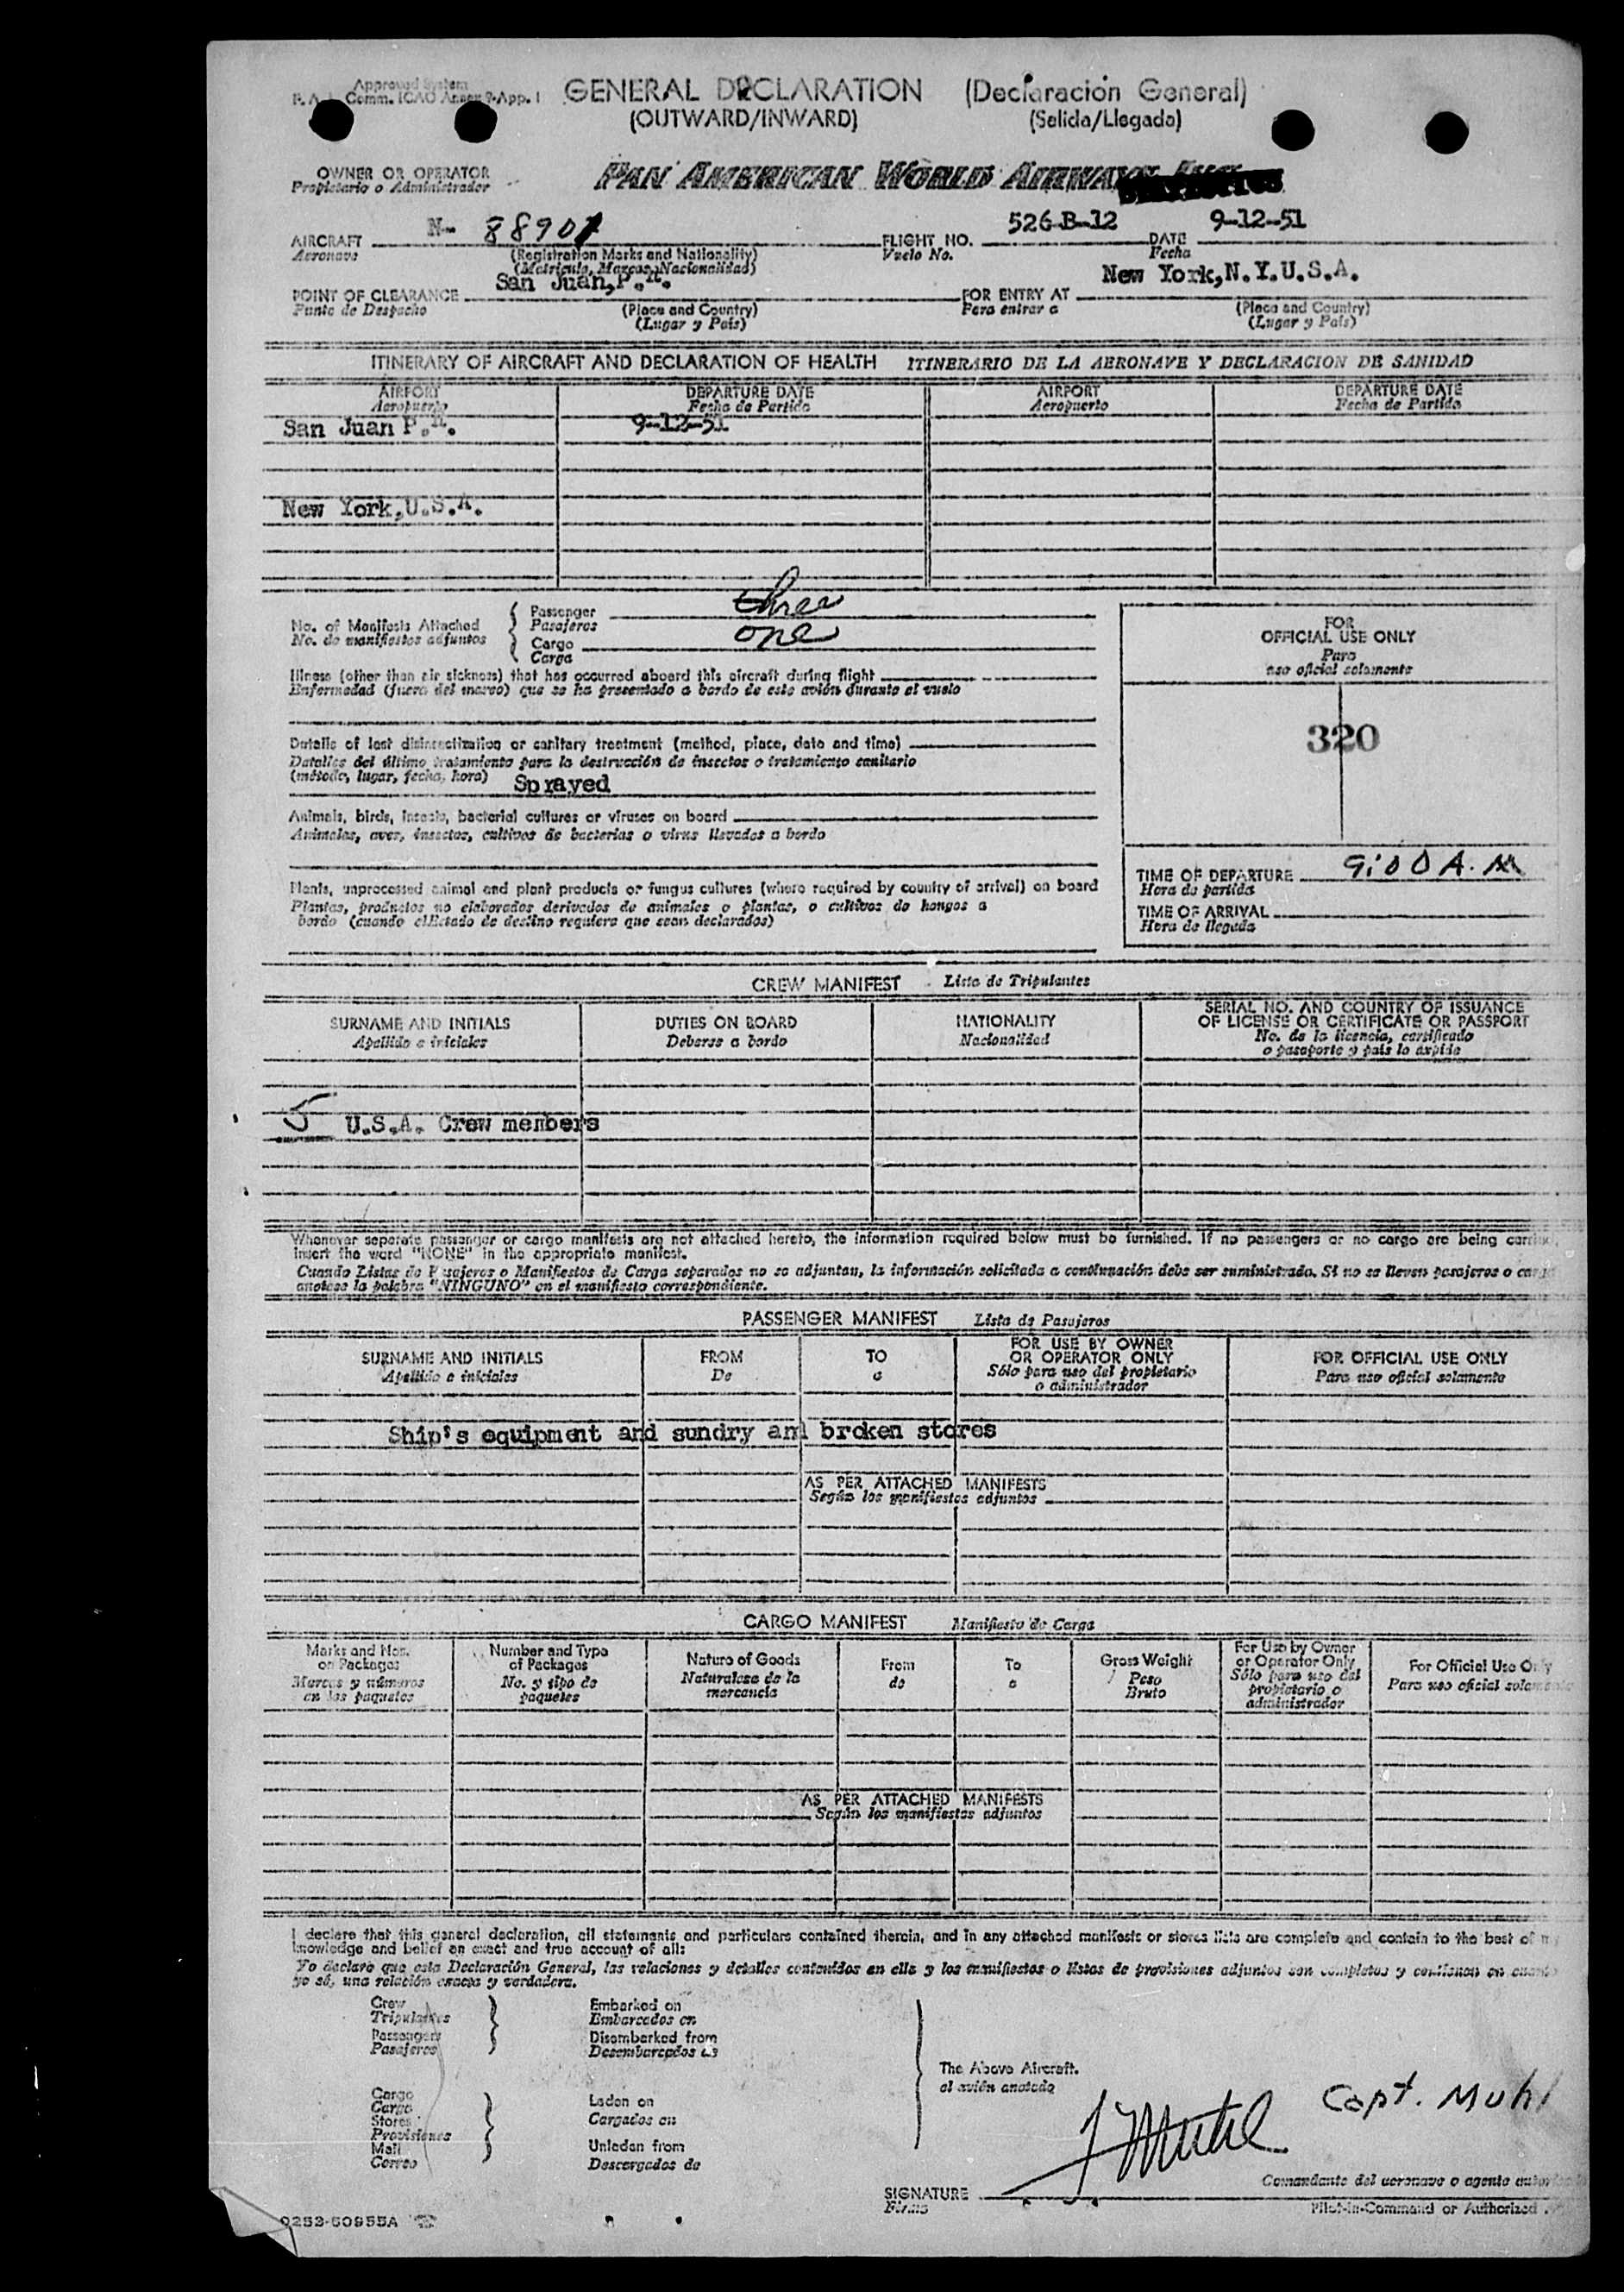 Approved System
F. A. L. Comm. ICAO Annex 9-App. 1
GENERAL DECLARATION (Declaración General)
(OUTWARD/INWARD) (Salida/Llegada)
OWNER OR OPERATOR
Propietario o Administrador
PAN AMERICAN WORLD AIRWAYS INC
AIRCRAFT N- 88907 FLIGHT NO. 526-B-12 DATE 9-12-51
Aeronave (Registration Marks and Nationality) Vuelo No. Fecha
(Matrícula, Marcas, Nacionalidad)
POINT OF CLEARANCE San Juan,P.R. FOR ENTRY AT New York,N.Y.U.S.A.
Punto de Despacho (Place and Country) Para entrar a (Place and Country)
(Lugar y País) (Lugar y País)
ITINERARY OF AIRCRAFT AND DECLARATION OF HEALTH ITINERARIO DE LA AERONAVE Y DECLARACION DE SANIDAD
AIRPORT DEPARTURE DATE AIRPORT DEPARTURE DATE
Aeropuerto Fecha de Partida Aeropuerto Fecha de Partida
San Juan P.R. 9-12-51
New York,U.S.A.
No. of Manifests Attached
No. de manifiestos adjuntos
Passenger three
Pasajeros
Cargo one
Carga
FOR
OFFICIAL USE ONLY
Para
uso oficial solamente
320
Illness (other than air sickness) that has occurred aboard this aircraft during flight
Enfermedad (fuera del mareo) que se ha presentado a bordo de este avión durante el vuelo
Details of last disinsectization or sanitary treatment (method, place, date and time)
Detalles del último tratamiento para la destrucción de insectos o tratamiento sanitario
(método, lugar, fecha, hora) Sprayed
Animals, birds, insects, bacterial cultures or viruses on board
Animales, aves, insectos, cultivos de bacterias o virus llevados a bordo
Plants, unprocessed animal and plant products or fungus cultures (where required by country of arrival) on board
Plantas, productos no elaborados derivados de animales o plantas, o cultivos de hongos a
bordo (cuando el Estado de destino requiera que sean declarados)
TIME OF DEPARTURE 9:00 A.M
Hora de partida
TIME OF ARRIVAL
Hora de llegada
CREW MANIFEST Lista de Tripulantes
SURNAME AND INITIALS DUTIES ON BOARD NATIONALITY SERIAL NO. AND COUNTRY OF ISSUANCE
OF LICENSE OR CERTIFICATE OR PASSPORT
Apellido e iniciales Deberse a bordo Nacionalidad No. de la licencia, certificado
o pasaporte y país lo expide
5 U.S.A. Crew members
Whenever separate passenger or cargo manifests are not attached hereto, the information required below must be furnished. If no passengers or no cargo are being carried,
insert the word "NONE" in the appropriate manifest.
Cuando Listas de Pasajeros o Manifiestos de Carga separados no se adjuntan, la información solicitada a continuación debe ser suministrada. Si no se lleven pasajeros o carga
anótese la palabra "NINGUNO" en el manifiesto correspondiente.
PASSENGER MANIFEST Lista de Pasajeros
SURNAME AND INITIALS FROM TO FOR USE BY OWNER
OR OPERATOR ONLY FOR OFFICIAL USE ONLY
Apellido e iniciales De a Sólo para uso del propietario
o administrador Para uso oficial solamente
Ship's equipment and sundry and broken stores
AS PER ATTACHED MANIFESTS
Según los manifiestos adjuntos
CARGO MANIFEST Manifiesto de Carga
Marks and Nos.
on Packages
Marcas y números
en los paquetes
Number and Type
of Packages
No. y tipo de
paquetes
Nature of Goods
Naturaleza de la
mercancía
From
de
To
a
Gross Weight
Peso
Bruto
For Use by Owner
or Operator Only
Sólo para uso del
propietario o
administrador
For Official Use Only
Para uso oficial solamente
AS PER ATTACHED MANIFESTS
Según los manifiestos adjuntos
I declare that this general declaration, all statements and particulars contained therein, and in any attached manifests or stores lists are complete and contain to the best of my
knowledge and belief an exact and true account of all:
Yo declaro que esta Declaración General, las relaciones y detalles contenidos en ella y los manifiestos o listas de provisiones adjuntos son completos y contienen en cuanto
yo sé, una relación exacta y verdadera.
Crew
Tripulantes
Passengers
Pasajeros
Embarked on
Embarcados en
Disembarked from
Desembarcados de
Cargo
Carga
Stores
Provisiones
Mail
Correo
Laden on
Cargados en
Unladen from
Descargados de
The Above Aircraft.
el avión anotado
Capt. Muhl
SIGNATURE
Firma
Comandante del aeronave o agente
Pilot-in-Command or Authorized
0253-60955A